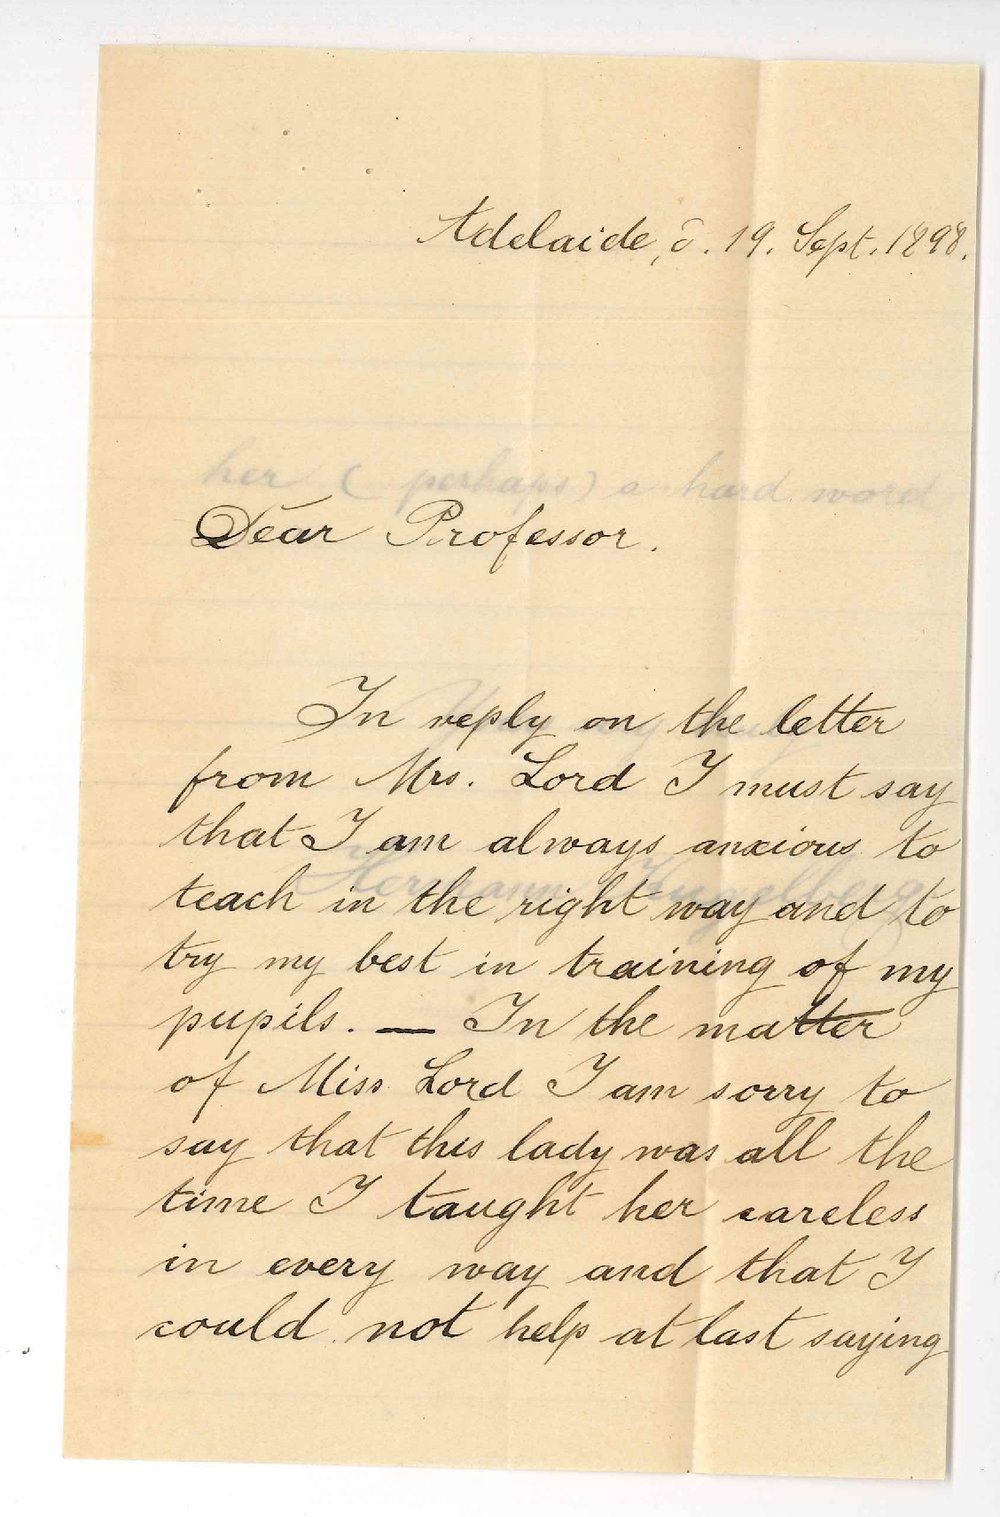 Adelaide, d. 19. Sept. 1898.
her (perhaps) a hard word
Dear Professor.
In reply on the letter
from Mrs. Lord I must say
that I am always anxious to
teach in the right way and to
Hermann
try my best in training of my
pupils. — In the matter
of Miss Lord I am sorry to
say that this lady was all the
time I taught her careless
in every way and that I
could not help at last saying